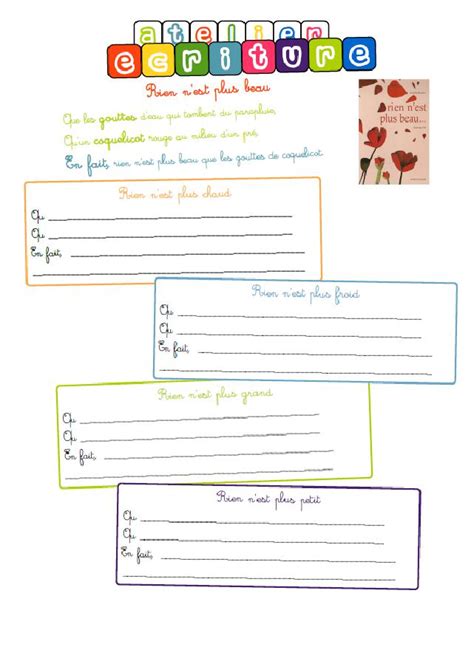 atelier
ecriture
Rien n'est plus beau
Que les gouttes d'eau qui tombent du parapluie,
Qu'un coquelicot rouge au milieu d'un pré,
En fait, rien n'est plus beau que les gouttes de coquelicot.
rien n'est
plus beau...
Rien n'est plus chaud
Qu
Qu
En fait,
Rien n'est plus froid
Qu
Qu
En fait,
Rien n'est plus grand
Qu
Qu
En fait,
Rien n'est plus petit
Qu
Qu
En fait,